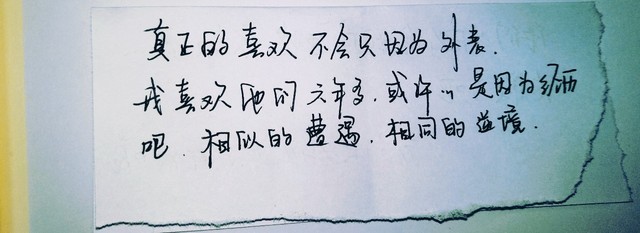 真正的喜欢不会只因为外表.
我喜欢他们六年多,或许 是因为经历
吧.相似的遭遇,相同的逆境.